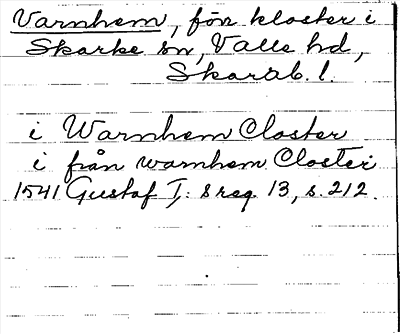 Varnhem, förr kloster i
Skarke sn, Valle hd,
Skarab. l.
i Warnhem Closter
i från warnhem Closter
1541 Gustaf I:s reg. 13, s. 212.